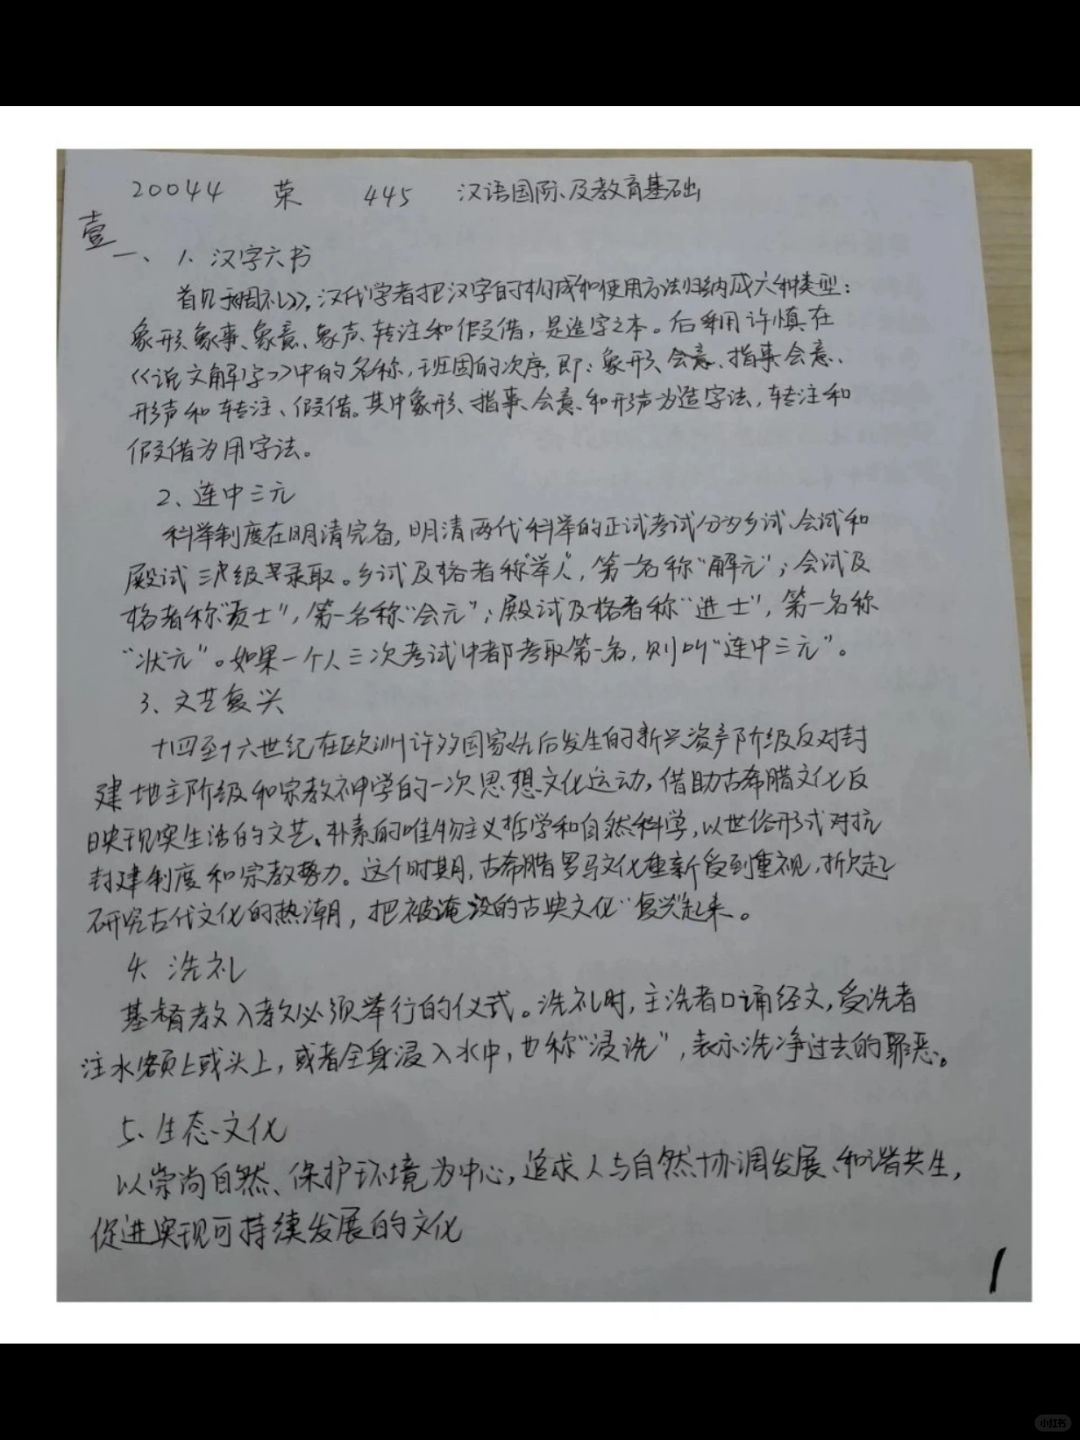 20044 荣 445 汉语国际及教育基础
壹
一、1、汉字六书
首见于《周礼》,汉代学者把汉字的构成和使用方法归纳成六种类型：
象形、象事、象意、象声、转注和假借，是造字之本。后采用许慎在
《说文解字》中的名称，班固的次序，即：象形、会意、指事、会意、
形声和转注、假借。其中象形、指事、会意、和形声为造字法，转注和
假借为用字法。
2、连中三元
科举制度在明清完备，明清两代科举的正试考试分为乡试、会试和
殿试三级录取。乡试及格者称"举人"，第一名称"解元"；会试及
格者称"贡士"，第一名称"会元"；殿试及格者称"进士"，第一名称
"状元"。如果一个人三次考试中都考取第一名，则叫"连中三元"。
3、文艺复兴
十四至十六世纪在欧洲许多国家先后发生的新兴资产阶级反对封
建地主阶级和宗教神学的一次思想文化运动，借助古希腊文化反
映现实生活的文艺、朴素的唯物主义哲学和自然科学，以世俗形式对抗
封建制度和宗教势力。这个时期，古希腊罗马文化重新受到重视，掀起
研究古代文化的热潮，把被淹没的古典文化"复兴"起来。
4、洗礼
基督教入教必须举行的仪式。洗礼时，主洗者口诵经文，受洗者
注水额上或头上，或者全身浸入水中，也称"浸洗"，表示洗净过去的罪恶。
5、生态文化
以崇尚自然、保护环境为中心，追求人与自然协调发展、和谐共生，
促进实现可持续发展的文化
1
小红书